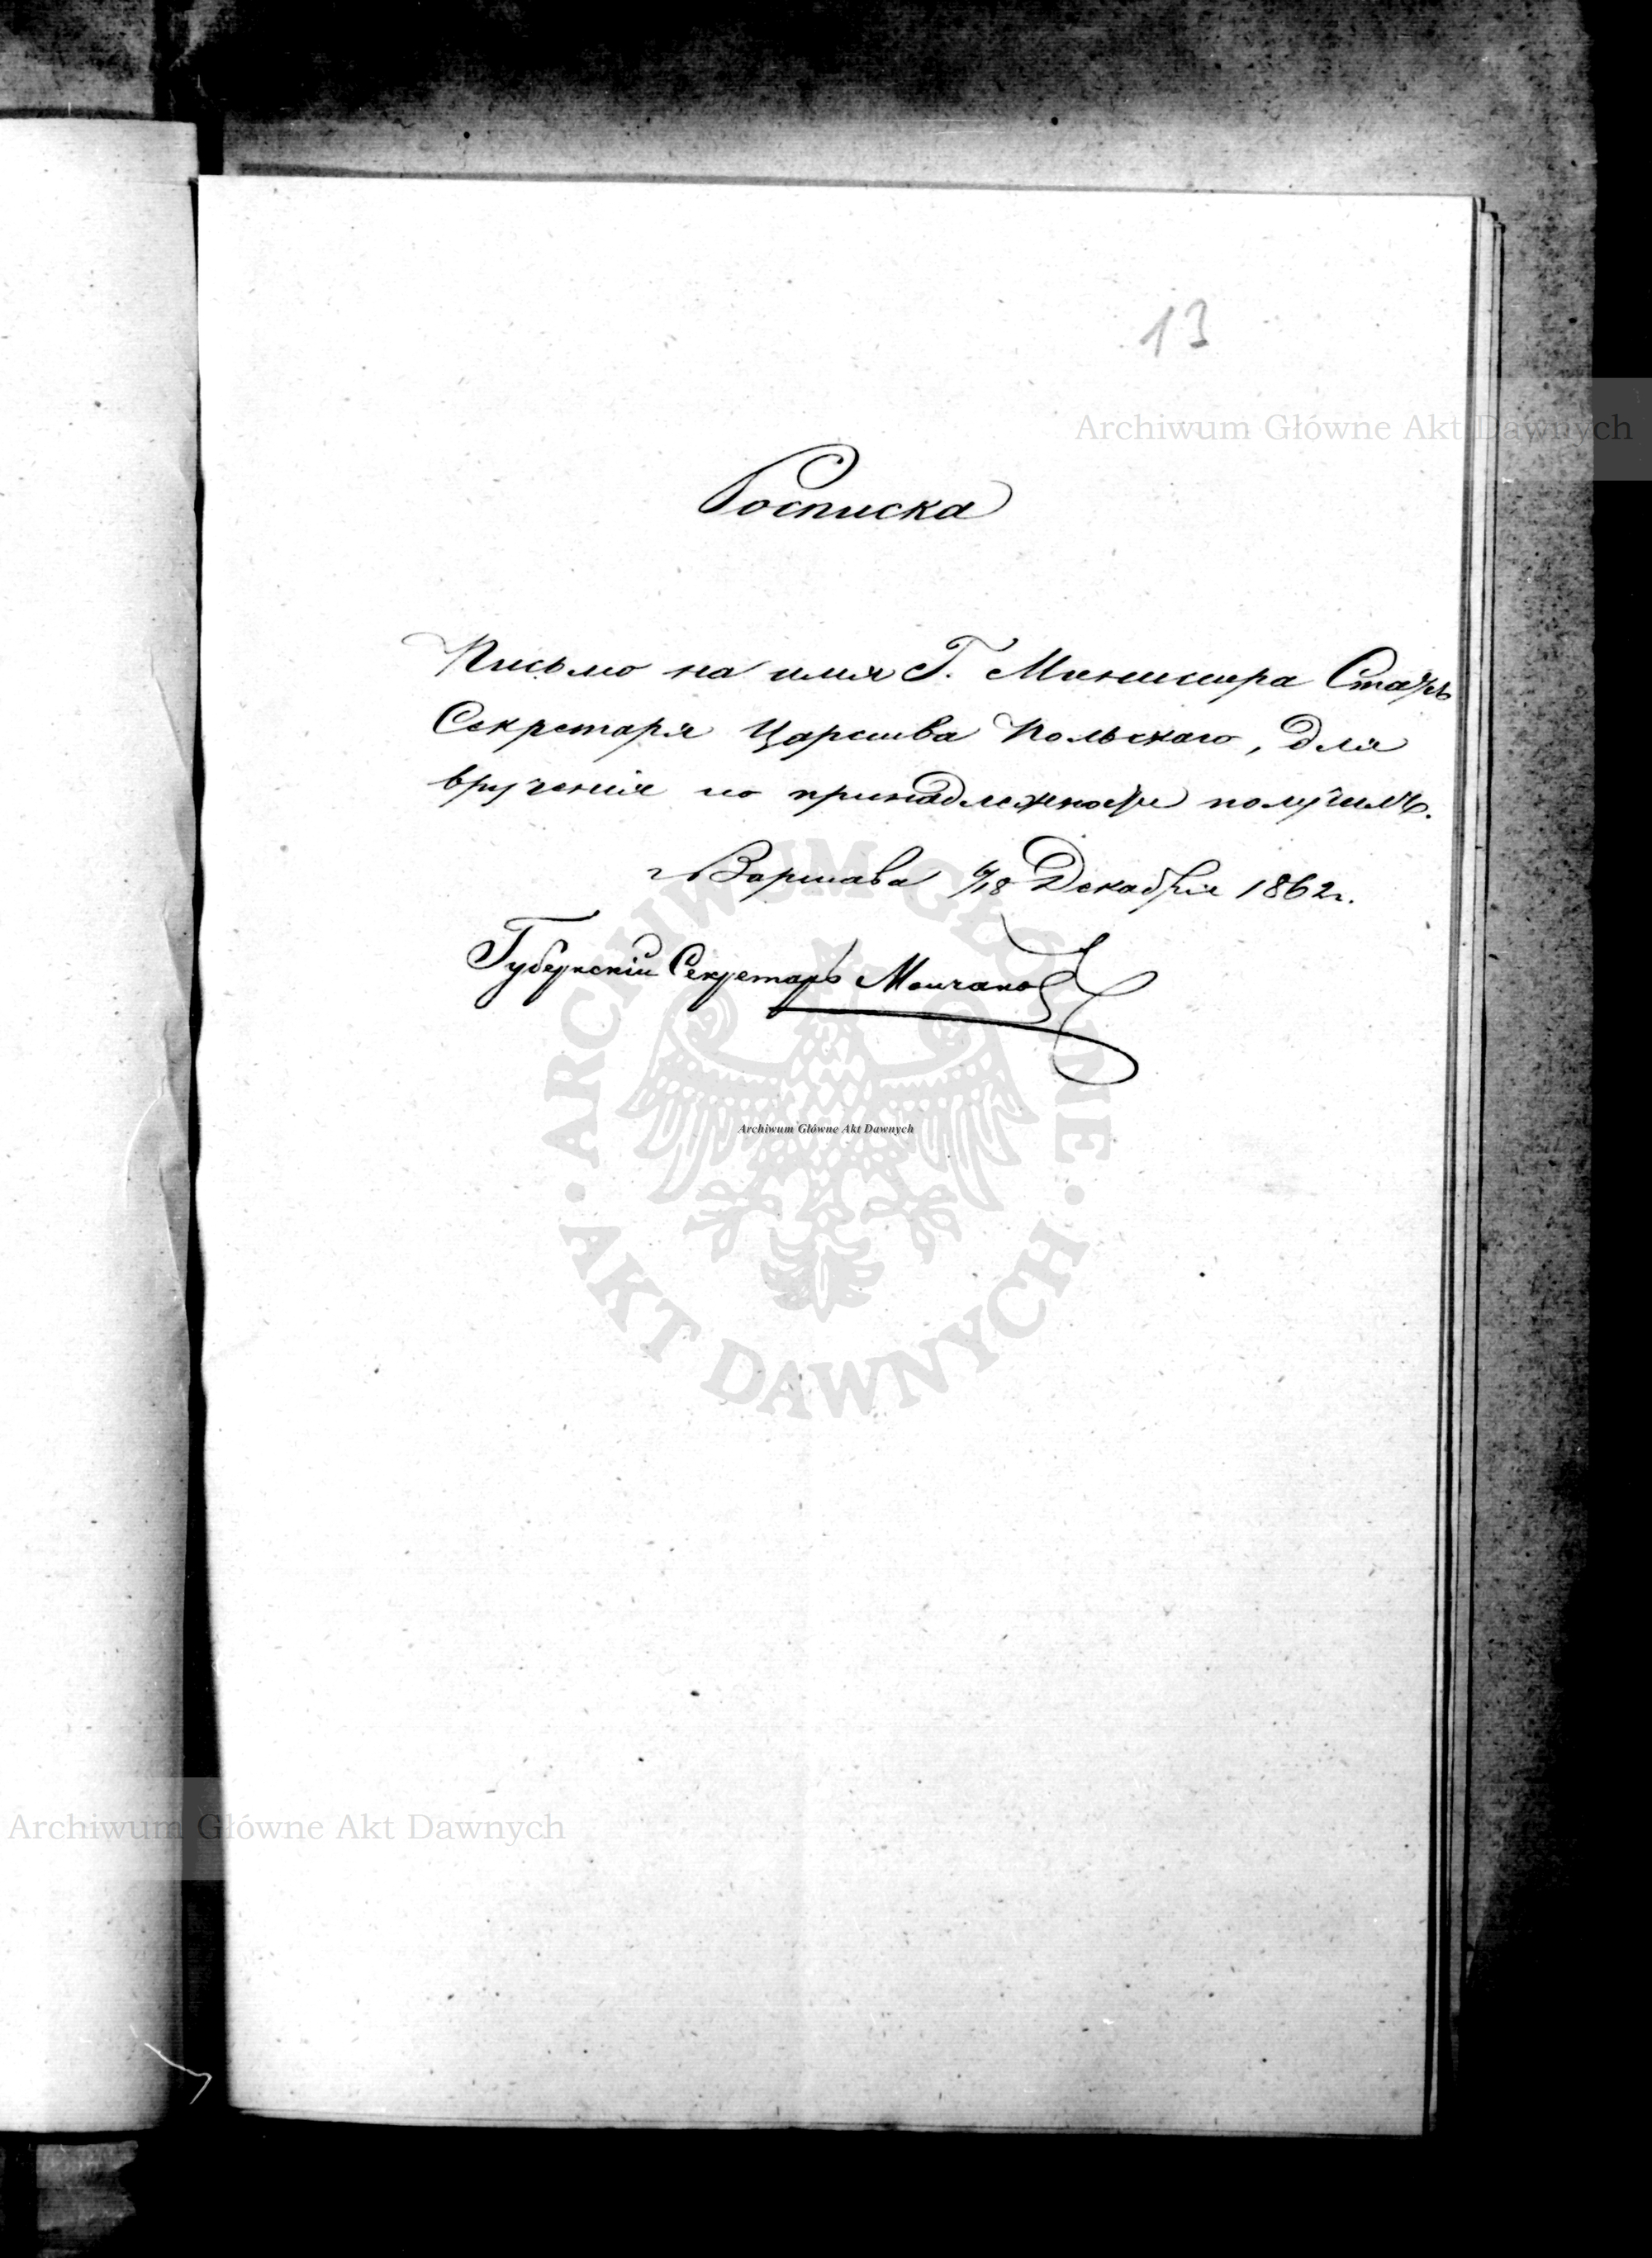 13
Archiwum Główne Akt Dawnych
Росписка
Письмо на имя Г. Министра Статсъ
Секретаря Царства Польскаго, для
врученія по принадлежности получилъ.
г. Варшава 6/18 Декабря 1862 г.
Губернскій Секретарь
ARCHIWUM GŁÓWNE
Archiwum Główne Akt Dawnych
AKT DAWNYCH
Archiwum Główne Akt Dawnych